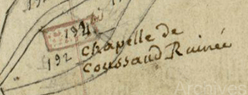 194
192 chapelle de
Coussaud Ruinée